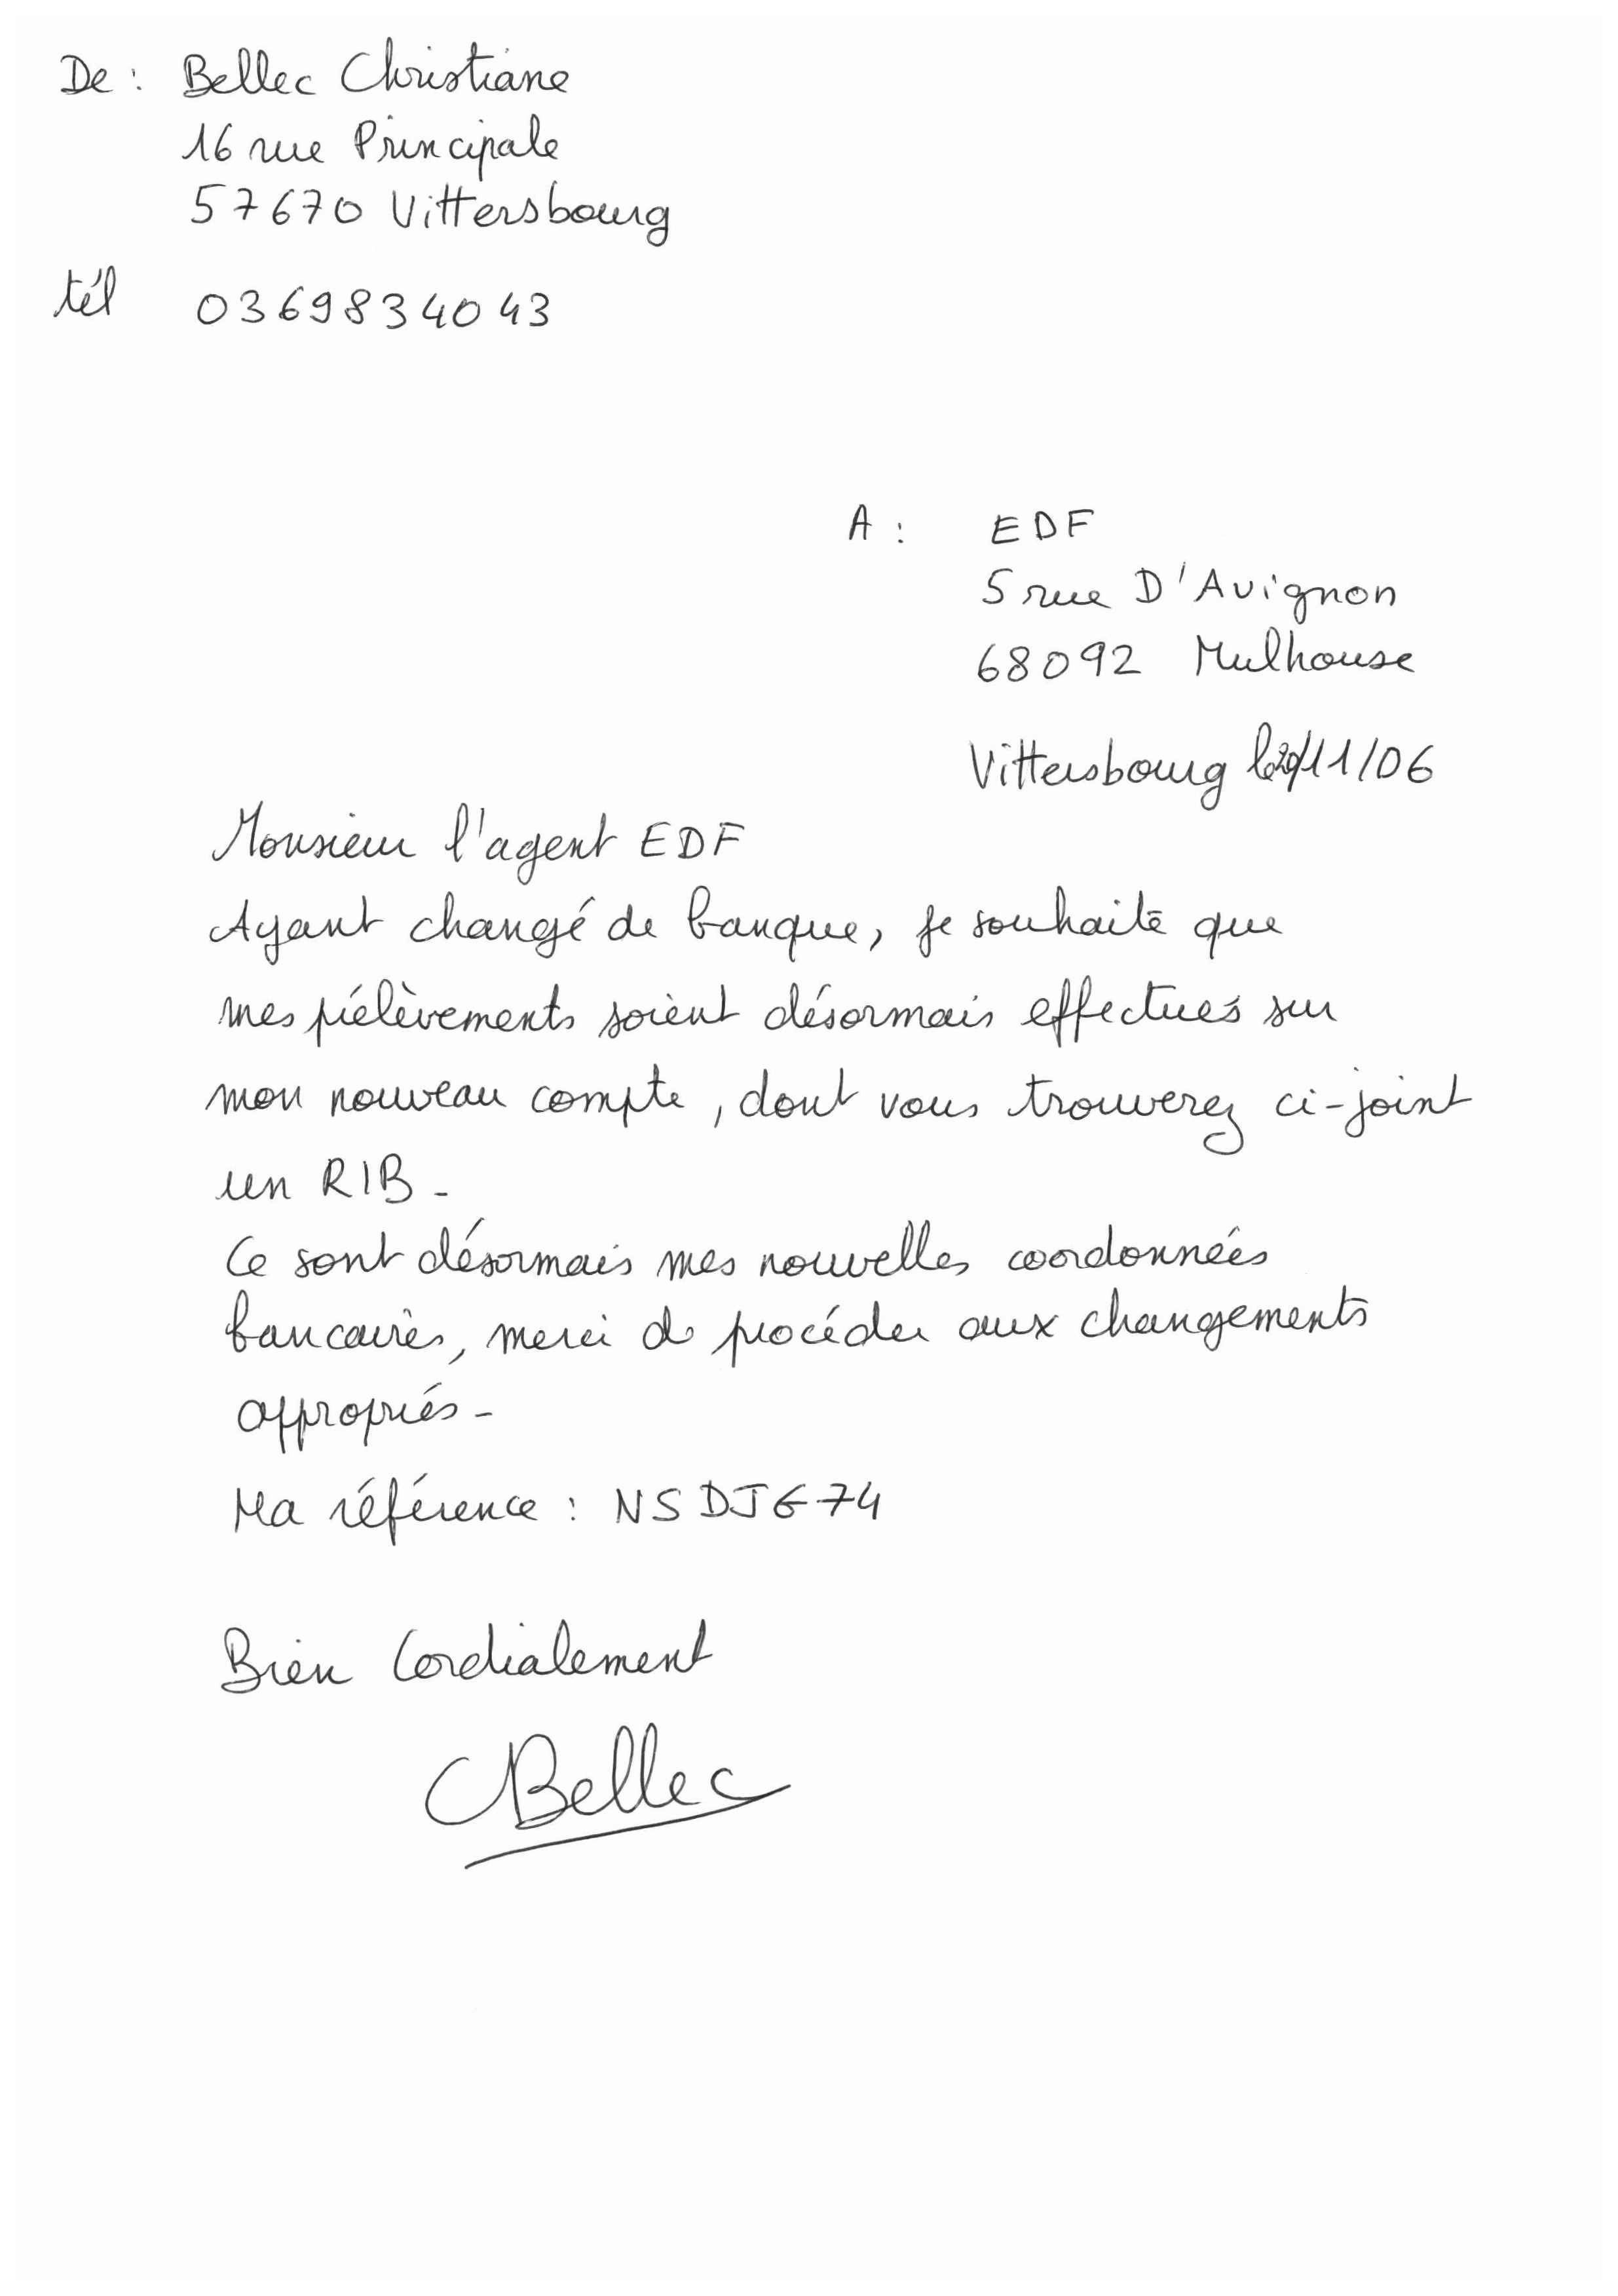 De : Bellec Christiane
16 rue Principale
57670 Vittersbourg
tél 0369834043
A : EDF
5 rue D'Avignon
68092 Mulhouse
Vittersbourg le 20/11/06
Monsieur l'agent EDF
Ayant changé de banque, je souhaite que
mes prélèvements soient désormais effectués sur
mon nouveau compte, dont vous trouverez ci-joint
un RIB -
Ce sont désormais mes nouvelles coordonnées
bancaires, merci de procéder aux changements
appropriés -
Ma référence : NSDJG74
Bien Cordialement
CBellec